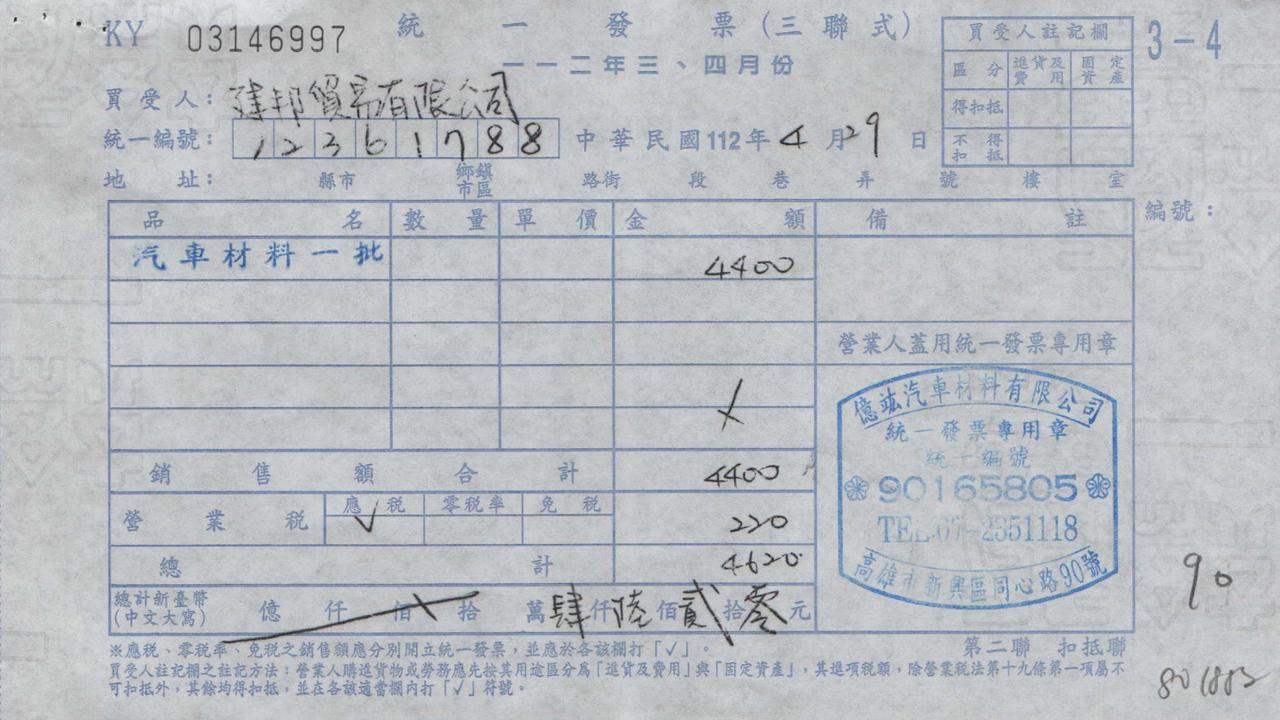 KY 03146997 統一發票(三聯式) 3-4
一一二年三、四月份
買受人註記欄
區分 進貨及費用 固定資產
得扣抵
不得扣抵
買受人：建邦貿易有限公司
統一編號：12361788 中華民國112年4月29日
地址： 縣市 鄉鎮市區 路街 段 巷 弄 號 樓 室
品名 數量 單價 金額 備註 編號：
汽車材料一批 4400
營業人蓋用統一發票專用章
銷售額合計 4400
營業稅 應稅 √ 零稅率 免稅 220
總計 4620
總計新臺幣(中文大寫) 億仟佰拾萬肆仟陸佰貳拾零元
億竑汽車材料有限公司
統一發票專用章
統一編號
90165805
TEL:07-2351118
高雄市新興區同心路90號
90
※應稅、零稅率、免稅之銷售額應分別開立統一發票，並應於各該欄打「√」。
第二聯 扣抵聯
買受人註記欄之註記方法：營業人購進貨物或勞務應先按其用途區分為「進貨及費用」與「固定資產」，其進項稅額，除營業稅法第十九條第一項屬不
可扣抵外，其餘均得扣抵，並在各該適當欄內打「√」符號。